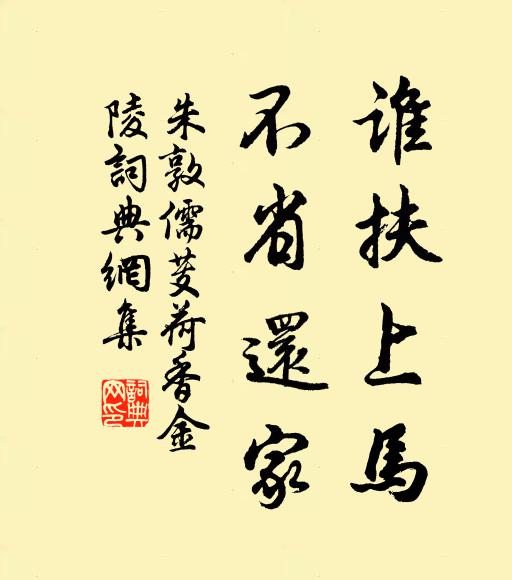 谁扶上馬
不省還家
朱敦儒芰荷香金
陵詞典網集
詞典
网印